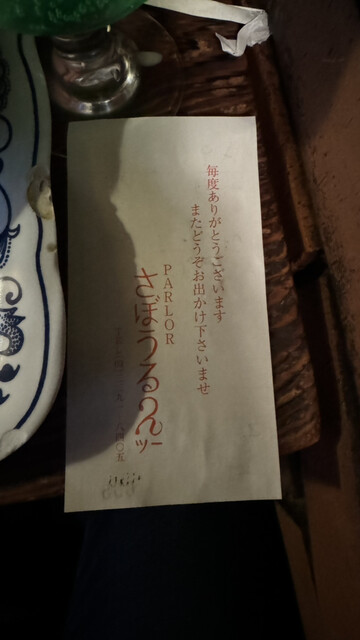 毎度ありがとうございます
またどうぞお出かけ下さいませ
PARLOR
さぼうる2
ツー